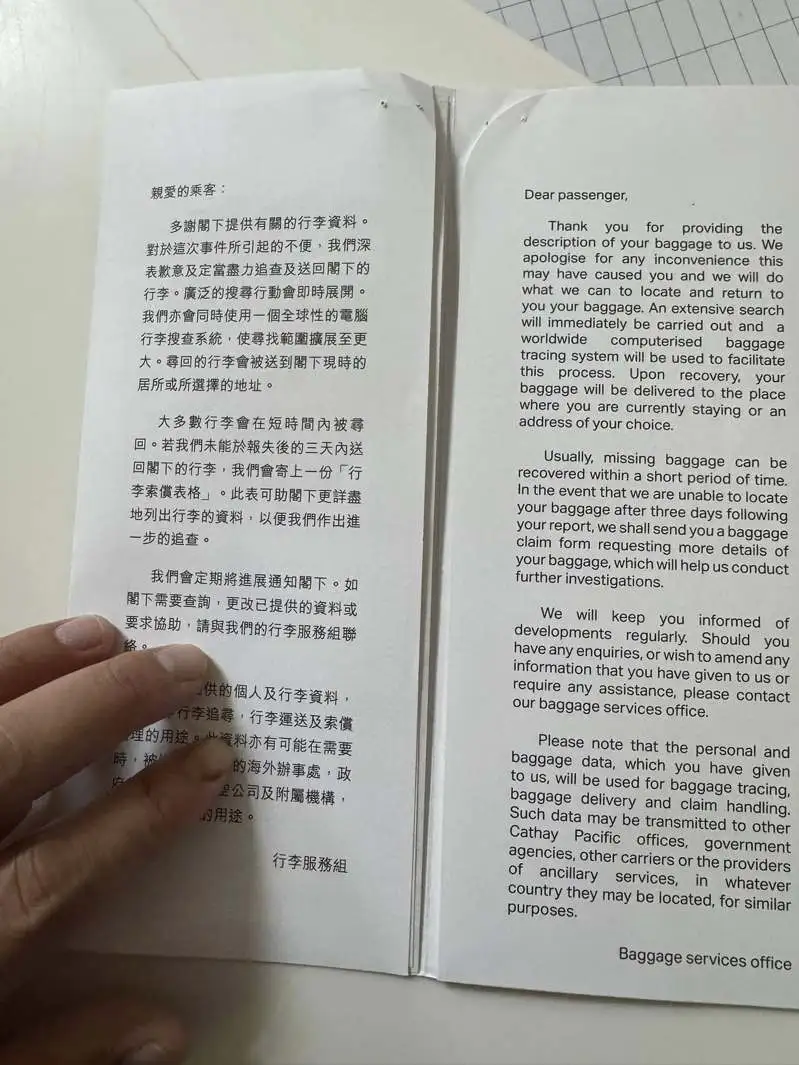 親愛的乘客：
多謝閣下提供有關的行李資料。
對於這次事件所引起的不便，我們深
表歉意及定當盡力追查及送回閣下的
行李。廣泛的搜尋行動會即時展開。
我們亦會同時使用一個全球性的電腦
行李搜查系統，使尋找範圍擴展至更
大。尋回的行李會被送到閣下現時的
居所或所選擇的地址。
大多數行李會在短時間內被尋
回。若我們未能於報失後的三天內送
回閣下的行李，我們會寄上一份「行
李索償表格」。此表可助閣下更詳盡
地列出行李的資料，以便我們作出進
一步的追查。
我們會定期將進展通知閣下。如
閣下需要查詢，更改已提供的資料或
要求協助，請與我們的行李服務組聯
絡。
供的個人及行李資料，
行李追尋，行李運送及索償
理的用途。此資料亦有可能在需要
時，被 的海外辦事處，政
公司及附屬機構，
的用途。
行李服務組
Dear passenger,
Thank you for providing the
description of your baggage to us. We
apologise for any inconvenience this
may have caused you and we will do
what we can to locate and return to
you your baggage. An extensive search
will immediately be carried out and a
worldwide computerised baggage
tracing system will be used to facilitate
this process. Upon recovery, your
baggage will be delivered to the place
where you are currently staying or an
address of your choice.
Usually, missing baggage can be
recovered within a short period of time.
In the event that we are unable to locate
your baggage after three days following
your report, we shall send you a baggage
claim form requesting more details of
your baggage, which will help us conduct
further investigations.
We will keep you informed of
developments regularly. Should you
have any enquiries, or wish to amend any
information that you have given to us or
require any assistance, please contact
our baggage services office.
Please note that the personal and
baggage data, which you have given
to us, will be used for baggage tracing,
baggage delivery and claim handling.
Such data may be transmitted to other
Cathay Pacific offices, government
agencies, other carriers or the providers
of ancillary services, in whatever
country they may be located, for similar
purposes.
Baggage services office